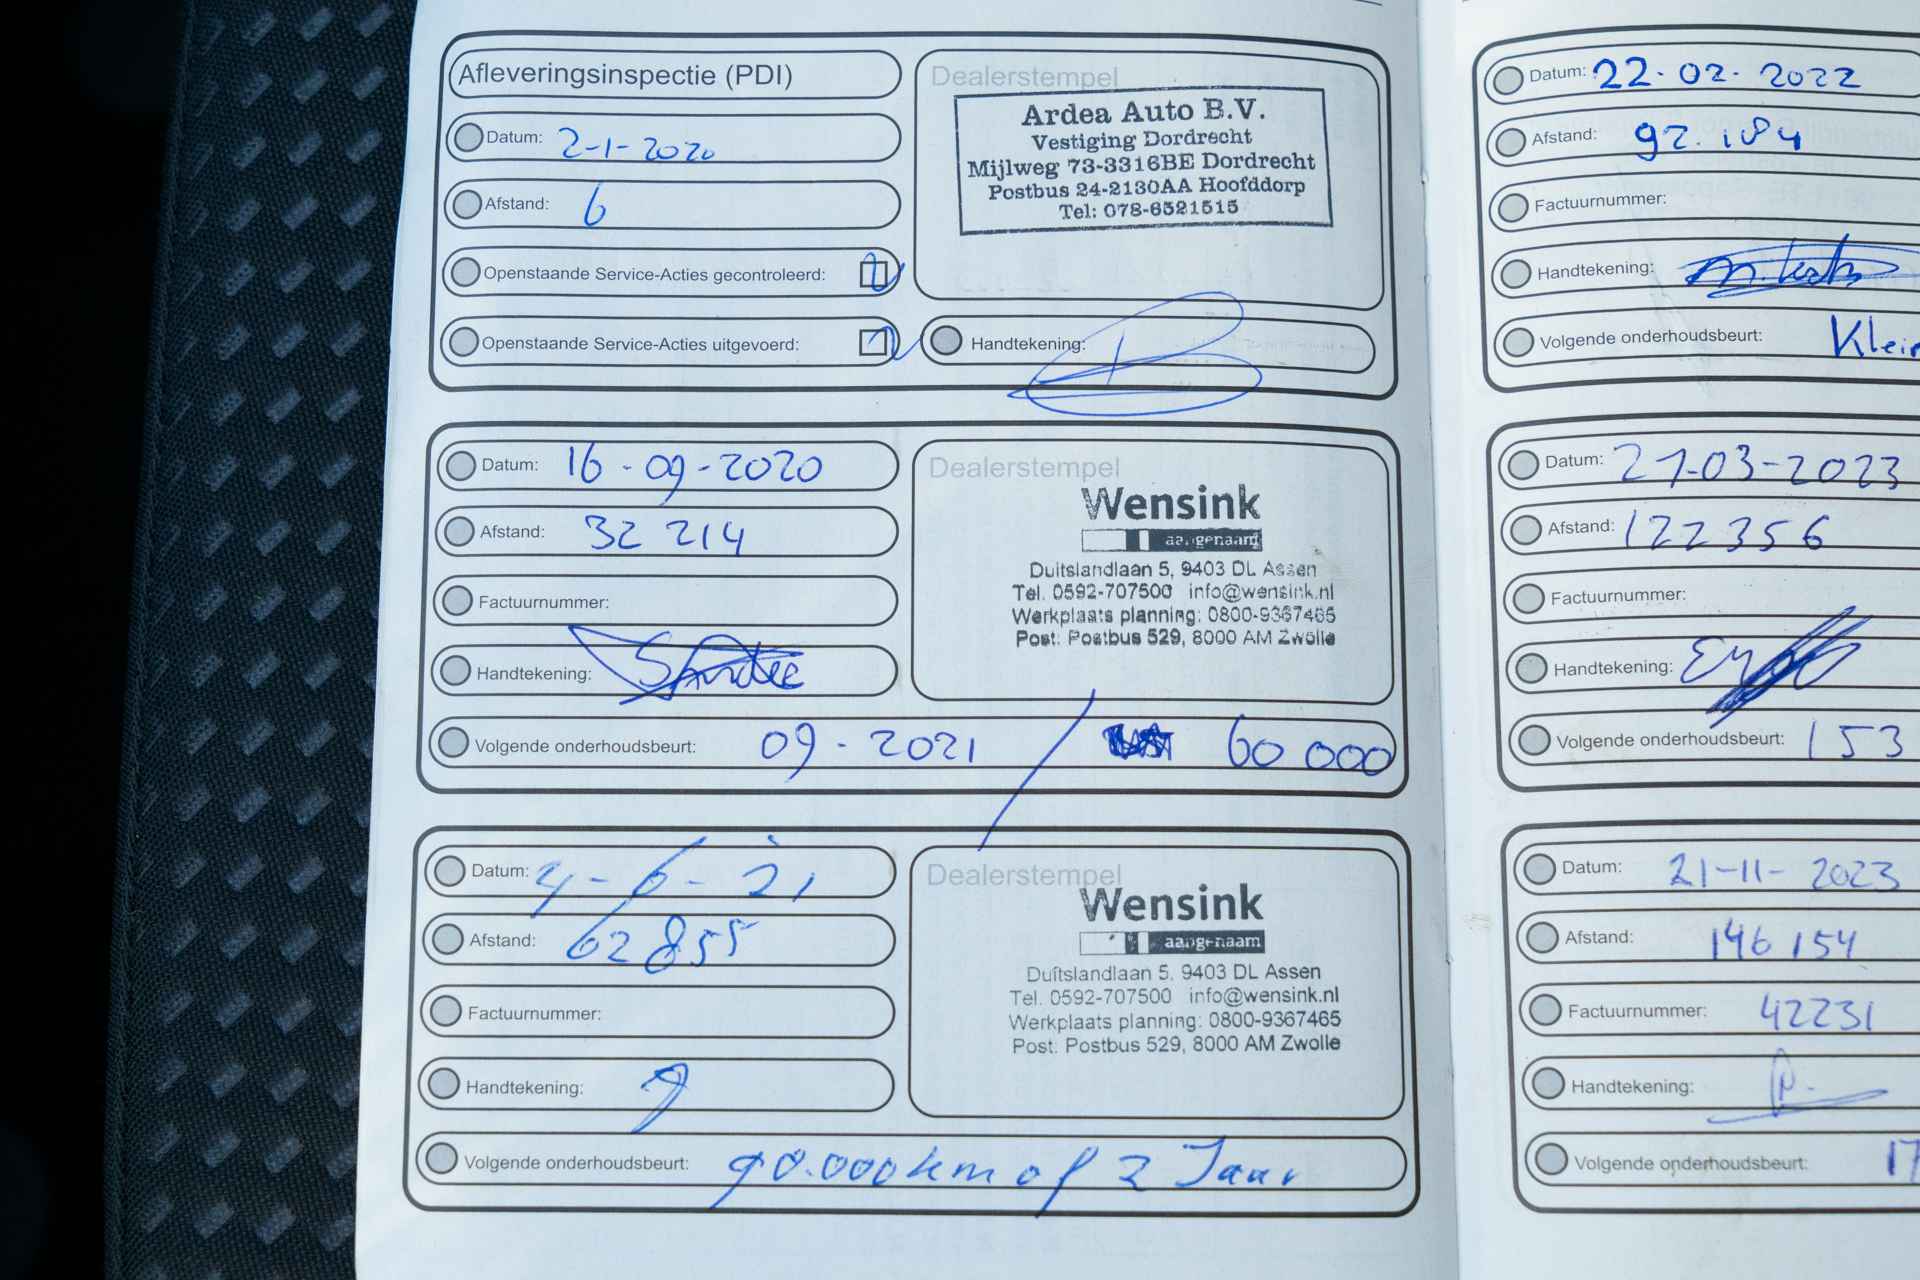 Afleveringsinspectie (PDI)
Datum: 2-1-2020
Afstand: 6
Openstaande Service-Acties gecontroleerd:
Openstaande Service-Acties uitgevoerd:
Dealerstempel
Ardea Auto B.V.
Vestiging Dordrecht
Mijlweg 73-3316BE Dordrecht
Postbus 24-2130AA Hoofddorp
Tel: 078-6521515
Handtekening:
Datum: 16-09-2020
Afstand: 32 214
Factuurnummer:
Handtekening:
Dealerstempel
Wensink
aangenaam
Duitslandlaan 5, 9403 DL Assen
Tel. 0592-707500 info@wensink.nl
Werkplaats planning: 0800-9367465
Post: Postbus 529, 8000 AM Zwolle
Volgende onderhoudsbeurt: 09-2021 / 60 000
Datum: 4-6-21
Afstand: 62855
Factuurnummer:
Handtekening:
Dealerstempel
Wensink
aangenaam
Duitslandlaan 5, 9403 DL Assen
Tel. 0592-707500 info@wensink.nl
Werkplaats planning: 0800-9367465
Post: Postbus 529, 8000 AM Zwolle
Volgende onderhoudsbeurt: 90.000km of 2 Jaar
Datum: 22-02-2022
Afstand: 92.184
Factuurnummer:
Handtekening:
Volgende onderhoudsbeurt: Klein
Datum: 21-03-2023
Afstand: 122356
Factuurnummer:
Handtekening:
Volgende onderhoudsbeurt: 153
Datum: 21-11-2023
Afstand: 146 154
Factuurnummer: 42231
Handtekening:
Volgende onderhoudsbeurt: 17